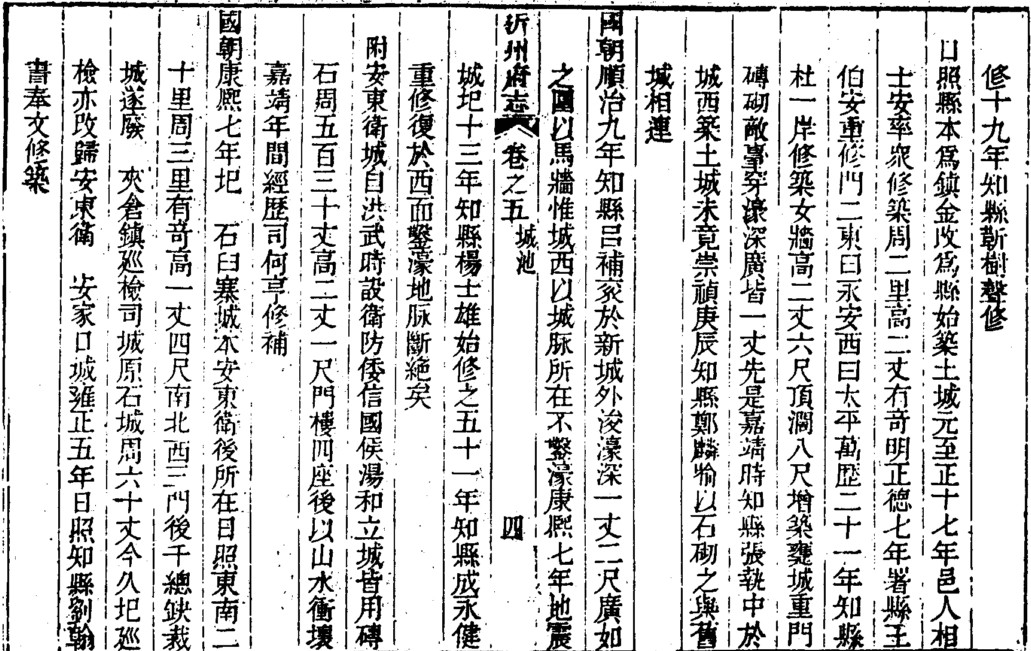 修十九年知縣靳樹聲修
日照縣本爲鎮金改爲縣始築土城元至正十七年邑人相
士安率衆修築周二里高二丈有奇明正德七年署縣王
伯安重修門二東曰永安西曰太平萬歷二十一年知縣
杜一岸修築女牆高二丈六尺頂濶八尺增築甕城重門
磚砌敵臺穿濠深廣皆一丈先是嘉靖時知縣張執中於
城西築土城未竟崇禎庚辰知縣鄭麟以石砌之與舊
城相連
國朝順治九年知縣呂補袞於新城外浚濠深一丈二尺廣如
沂州府志 卷之五 城池 四
之圍以馬牆惟城西以城脉所在不鑿濠康熙七年地震
城圮十三年知縣楊士雄始修之五十一年知縣成永健
重修復於西面鑿濠地脉斷絶矣
附安東衛城自洪武時設衛防倭信國侯湯和立城皆用磚
石周五百三十丈高二丈一尺門樓四座後以山水衝壞
嘉靖年間經歷司何亨修補
國朝康熙七年圮 石臼寨城本安東衛後所在日照東南二
十里周三里有奇高一丈四尺南北西三門後千總缺裁
城遂廢 夾倉鎮廵檢司城原石城周六十丈今久圮廵
檢亦改歸安東衛 安家口城雍正五年日照知縣劉翰
書奉文修築